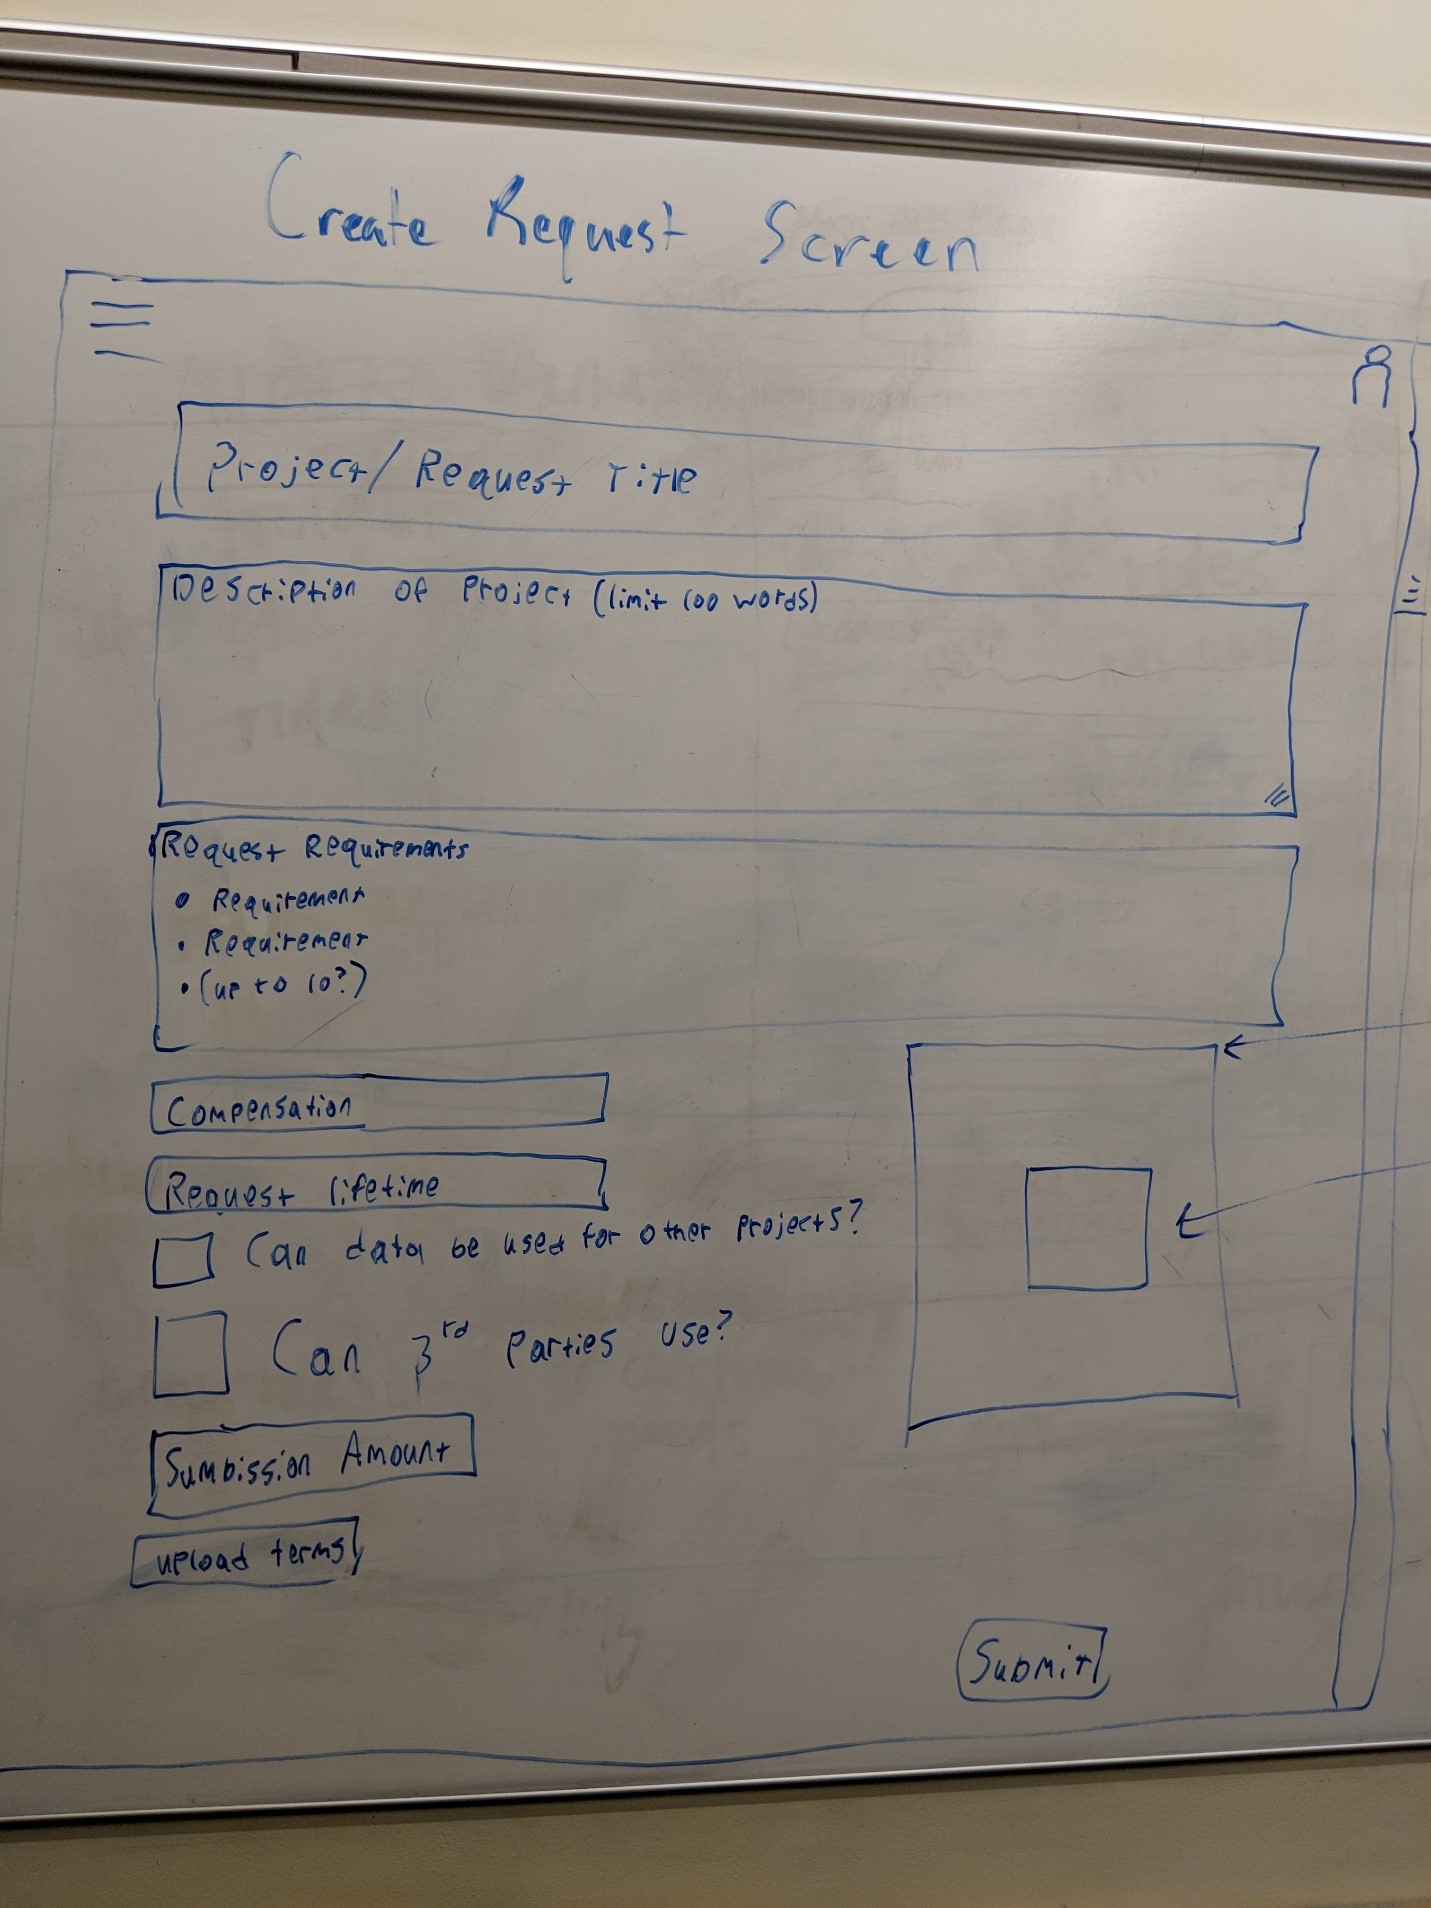 Create Request Screen
Project/Request Title
Description of Project (limit 100 words)
Request Requirements
• Requirement
• Requirement
• (up to 10?)
Compensation
Request lifetime
Can data be used for other projects?
Can 3rd Parties use?
Sumbission Amount
upload terms
Submit